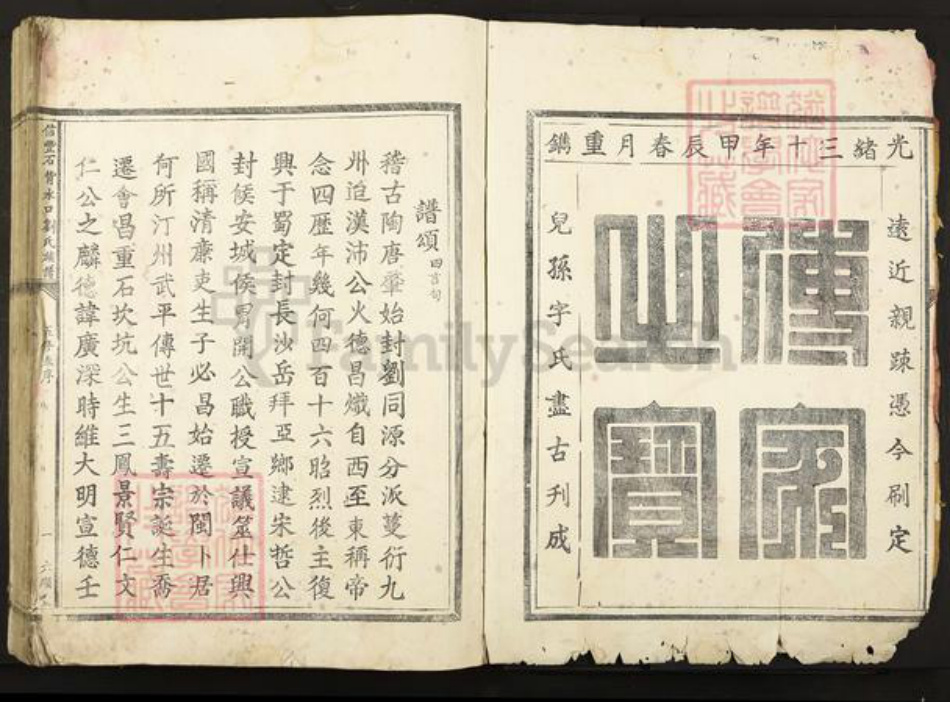 光緒三十年甲辰春月重鐫
遠近親疎憑今刷定
傳家之寶
兒孫字氏盡古刊成
譜頌 四言句
稽古陶唐肇始封劉同源分派蔓衍九
州迨漢沛公火德昌熾自西至東稱帝
念四歷年幾何四百十六昭烈後主復
興于蜀定封長沙岳拜亞鄉逮宋哲公
封侯安城侯胃開公職授宣議筮仕興
國稱清亷吏生子必昌始遷於閩卜居
何所汀州武平傳世十五壽宗誕生喬
遷會昌重石坎坑公生三鳳景賢仁文
仁公之麟德諱廣深時維大明宣德壬
信豐石背水口劉氏族譜
FamilySearch